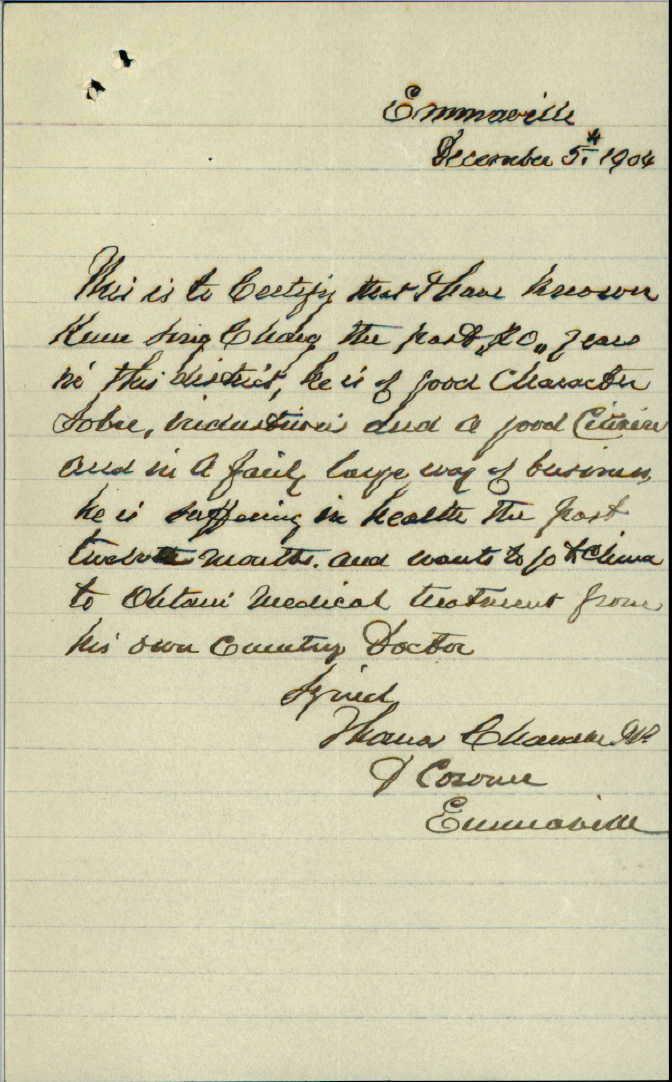 Emmaville
December 5th 1904
This is to Certify that I have known
Kum Sing Chong the past "20" years
in this district, he is of good Character
Sober, industrious and a good Citizen
and in a fairly large way of business,
he is suffering in health the past
twelve months. and wants to go to China
to Obtain Medical treatment from
his own Country Doctor
Signed
Thomas
D Coroner
Emmaville